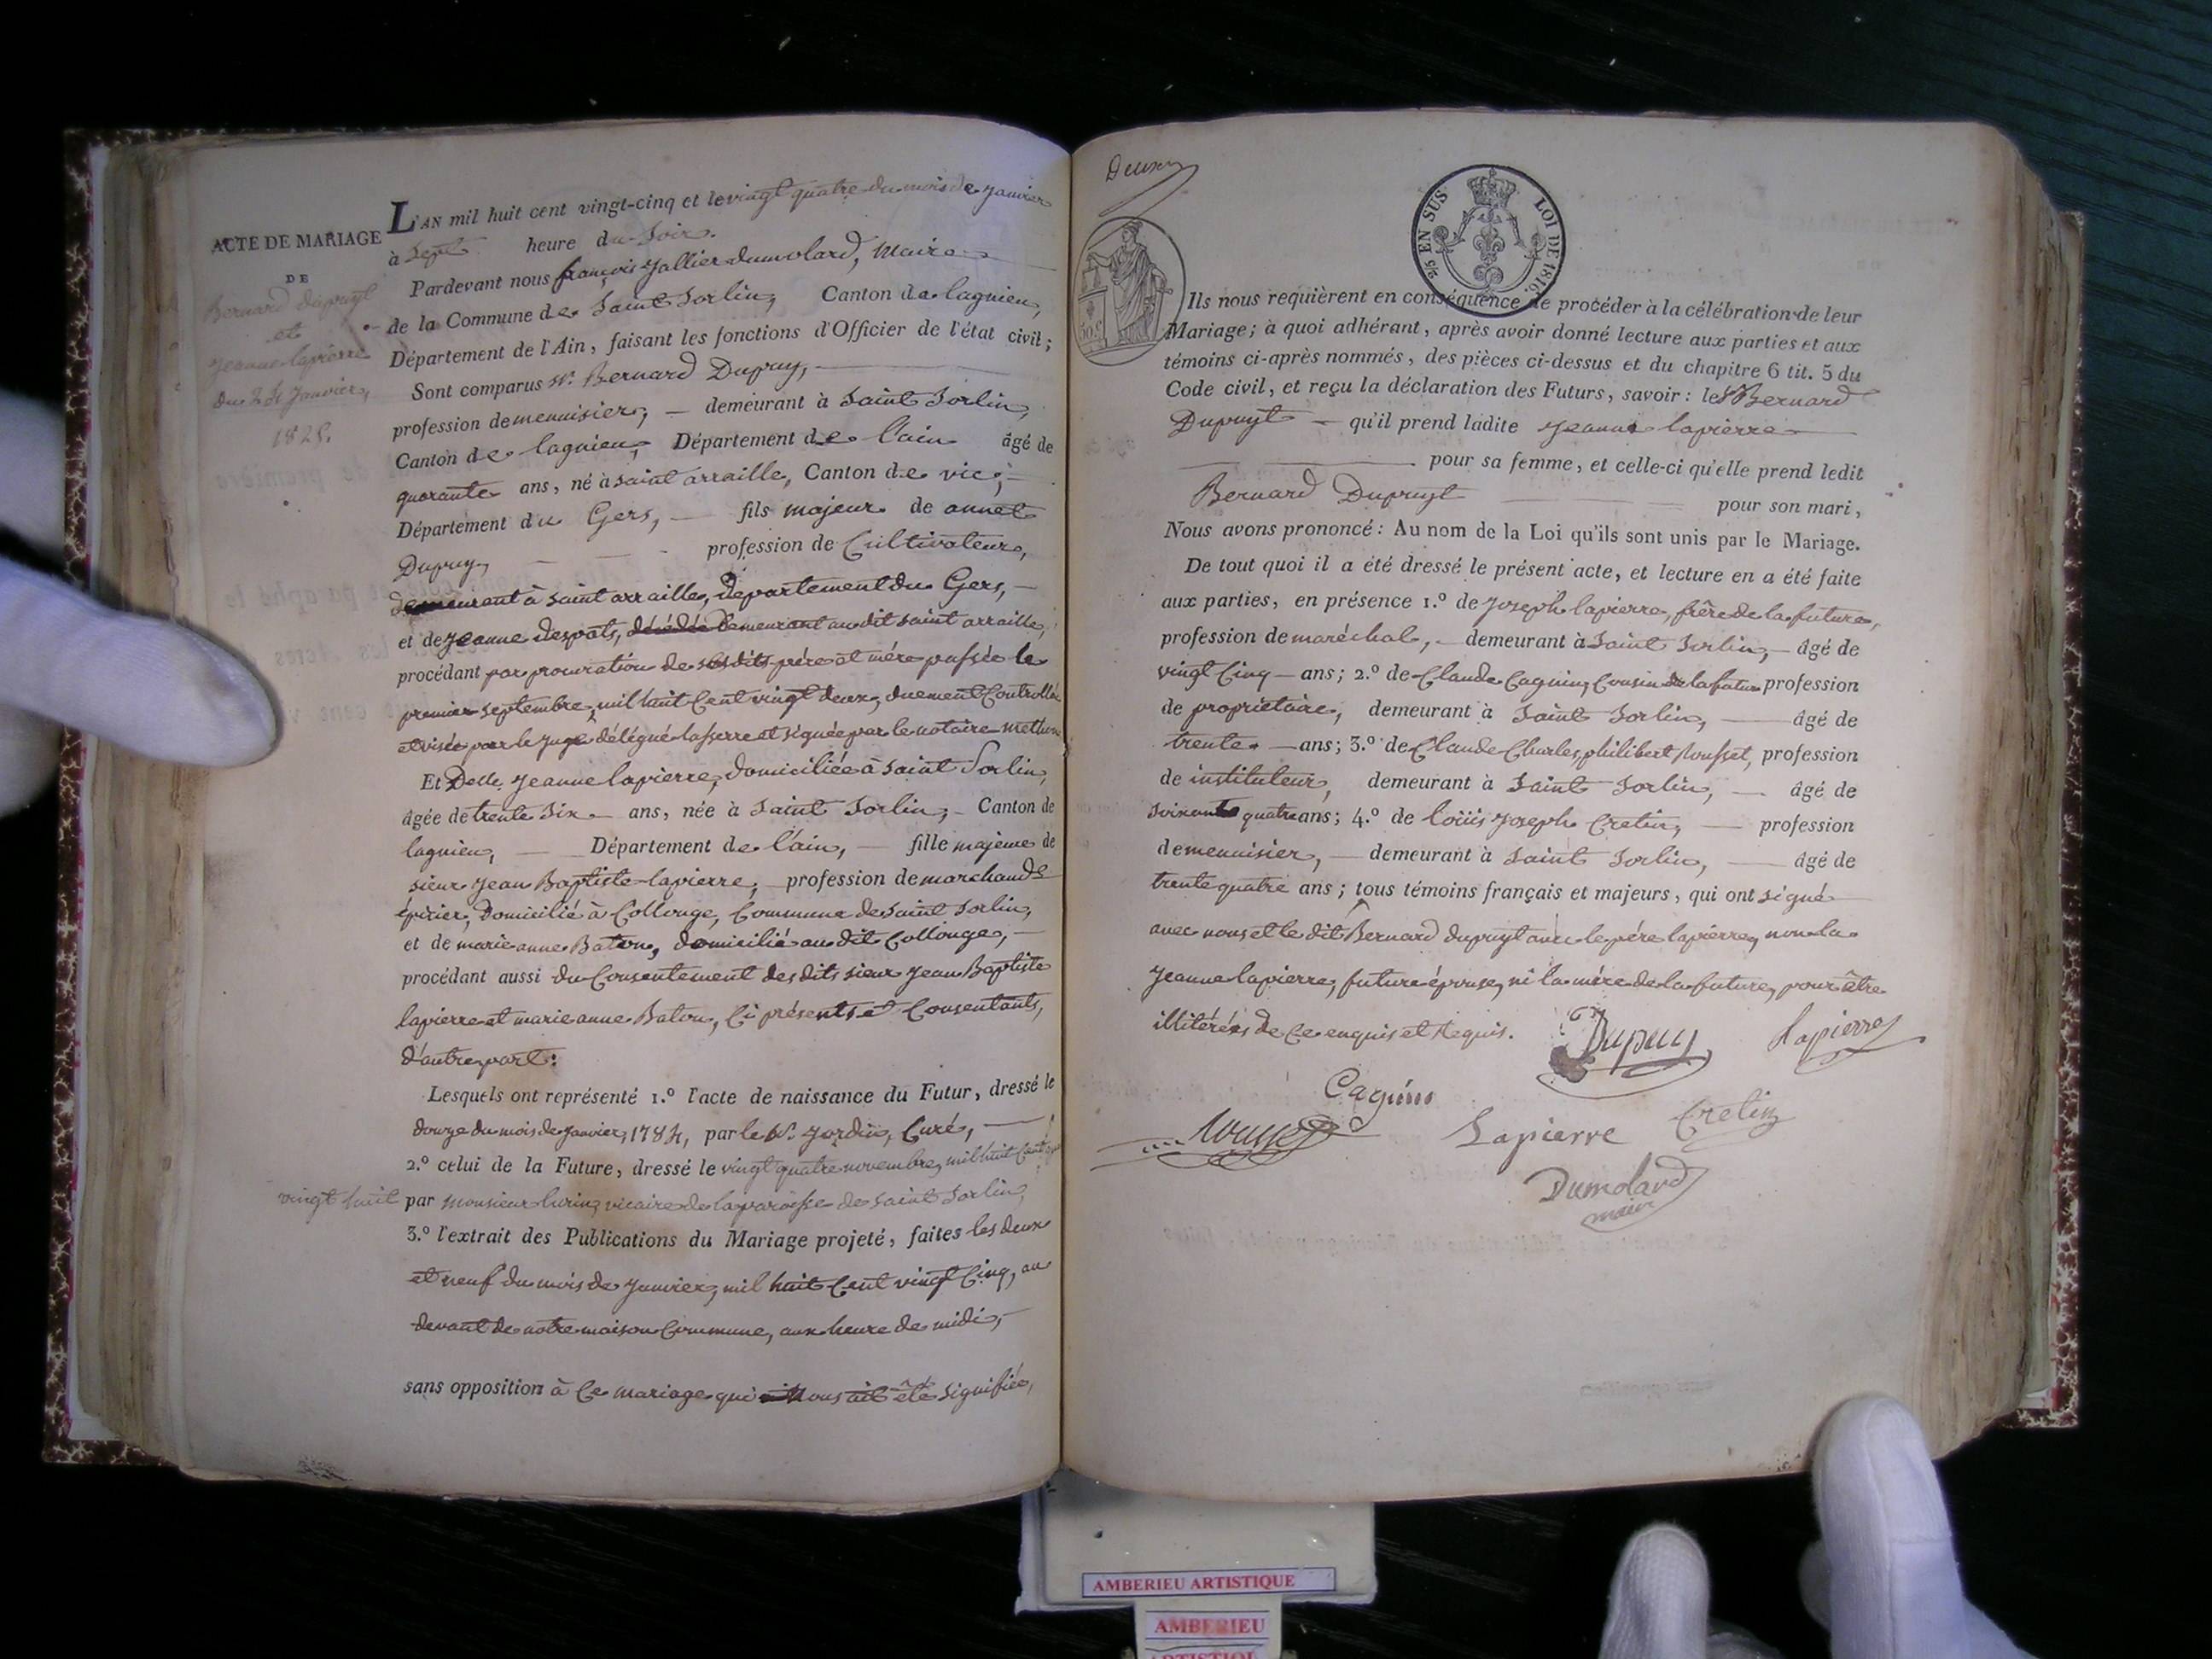 ACTE DE MARIAGE
DE
Bernard Dupuyt
et
Jeanne lapierre
Du 24 Janvier,
1825.
L'AN mil huit cent vingt-cinq et le vingt quatre du mois de Janvier
à Sept heure du Soir.
Pardevant nous françois Jallier dumolard, Maire
de la Commune de Saint Sorlin, Canton de lagnieu,
Département de l'Ain, faisant les fonctions d'Officier de l'état civil;
Sont comparus Sr. Bernard Dupuy,
profession de menuisier, demeurant à Saint Sorlin,
Canton de lagnieu, Département de l'ain âgé de
quarante ans, né à saint arraille, Canton de vic,
Département du Gers, fils majeur de annet
Dupuy, profession de Cultivateur,
demeurent à saint arraille, Departement du Gers,
et de Jeanne despats, décédée demeurant au dit saint arraille,
procédant par procuration de sesdits père et mère passée le
premier septembre, mil huit Cent vingt deux, duement Controllée
et visée par le juge délégué lasserre et signée par le notaire
Et Delle. Jeanne lapierre, domiciliée à Saint Sorlin,
âgée de trente Six ans, née à Saint Sorlin, Canton de
lagnieu, Département de l'ain, fille majeure de
sieur Jean Baptiste lapierre, profession de marchand
épicier, Domicilié à Collonge, Commune de Saint Sorlin,
et de marie anne Baton, domicilié au dit Collonge,
procédant aussi du Consentement des dits sieur Jean Baptiste
lapierre et marie anne Baton, Ci présents et Consentants,
d'autre part:
Lesquels ont représenté 1.º l'acte de naissance du Futur, dressé le
douze du mois de Janvier, 1784, par le Sr. Jordin, Curé,
2.º celui de la Future, dressé le vingt quatre novembre, mil huit Cent
vingt huit par Monsieur lurin, vicaire de la paroisse de saint Sorlin,
3.º l'extrait des Publications du Mariage projeté, faites les deux
et neuf du mois de Janvier, mil huit Cent vingt Cinq, au
devant de notre maison Commune, aux heure de midi,
sans opposition à Ce mariage qui nous ait été signifiée,
Deux
2/5 EN SUS LOI DE 1816.
50 c
Ils nous requièrent en conséquence de procéder à la célébration de leur
Mariage; à quoi adhérant, après avoir donné lecture aux parties et aux
témoins ci-après nommés, des pièces ci-dessus et du chapitre 6 tit. 5 du
Code civil, et reçu la déclaration des Futurs, savoir: le Sr Bernard
Dupuyt qu'il prend ladite Jeanne lapierre
pour sa femme, et celle-ci qu'elle prend ledit
Bernard Dupuyt pour son mari,
Nous avons prononcé: Au nom de la Loi qu'ils sont unis par le Mariage.
De tout quoi il a été dressé le présent acte, et lecture en a été faite
aux parties, en présence 1.º de Joseph lapierre, frère de la future,
profession de maréchal, demeurant à Saint Sorlin, âgé de
vingt Cinq ans; 2.º de Claude Cagnin, Cousin de la future profession
de propriétaire, demeurant à Saint Sorlin, âgé de
trente ans; 3.º de Claude Charles philibert Rousset, profession
de instituteur, demeurant à Saint Sorlin, âgé de
soixante quatre ans; 4.º de Loüis Joseph Cretin, profession
de menuisier, demeurant à Saint Sorlin, âgé de
trente quatre ans; tous témoins français et majeurs, qui ont signé
avec nous et le dit Bernard dupuyt avec le père lapierre, non la
Jeanne lapierre, future épouse, ni la mère de la future, pour être
illitérées de Ce enquis et Requis.
Dupuy Lapierre
Cagnin
Rousset Lapierre Cretin
Dumolard
maire
AMBERIEU ARTISTIQUE
AMBERIEU
ARTISTIQUE